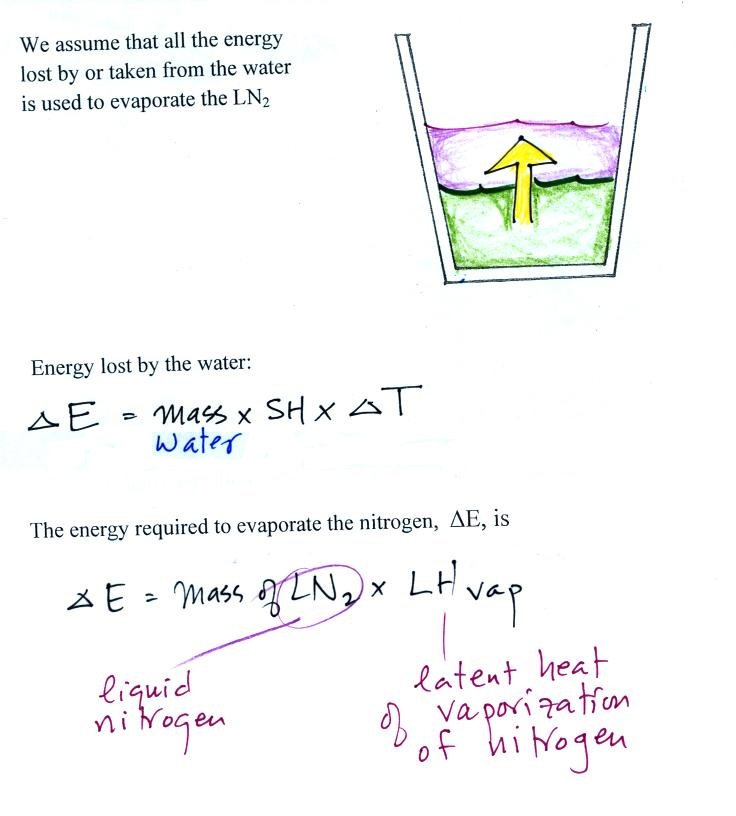 We assume that all the energy
lost by or taken from the water
is used to evaporate the LN₂
Energy lost by the water:
ΔE = mass x SH x ΔT
water
The energy required to evaporate the nitrogen, ΔE, is
ΔE = mass of LN₂ x LH vap
liquid
nitrogen
latent heat
of vaporization
of nitrogen